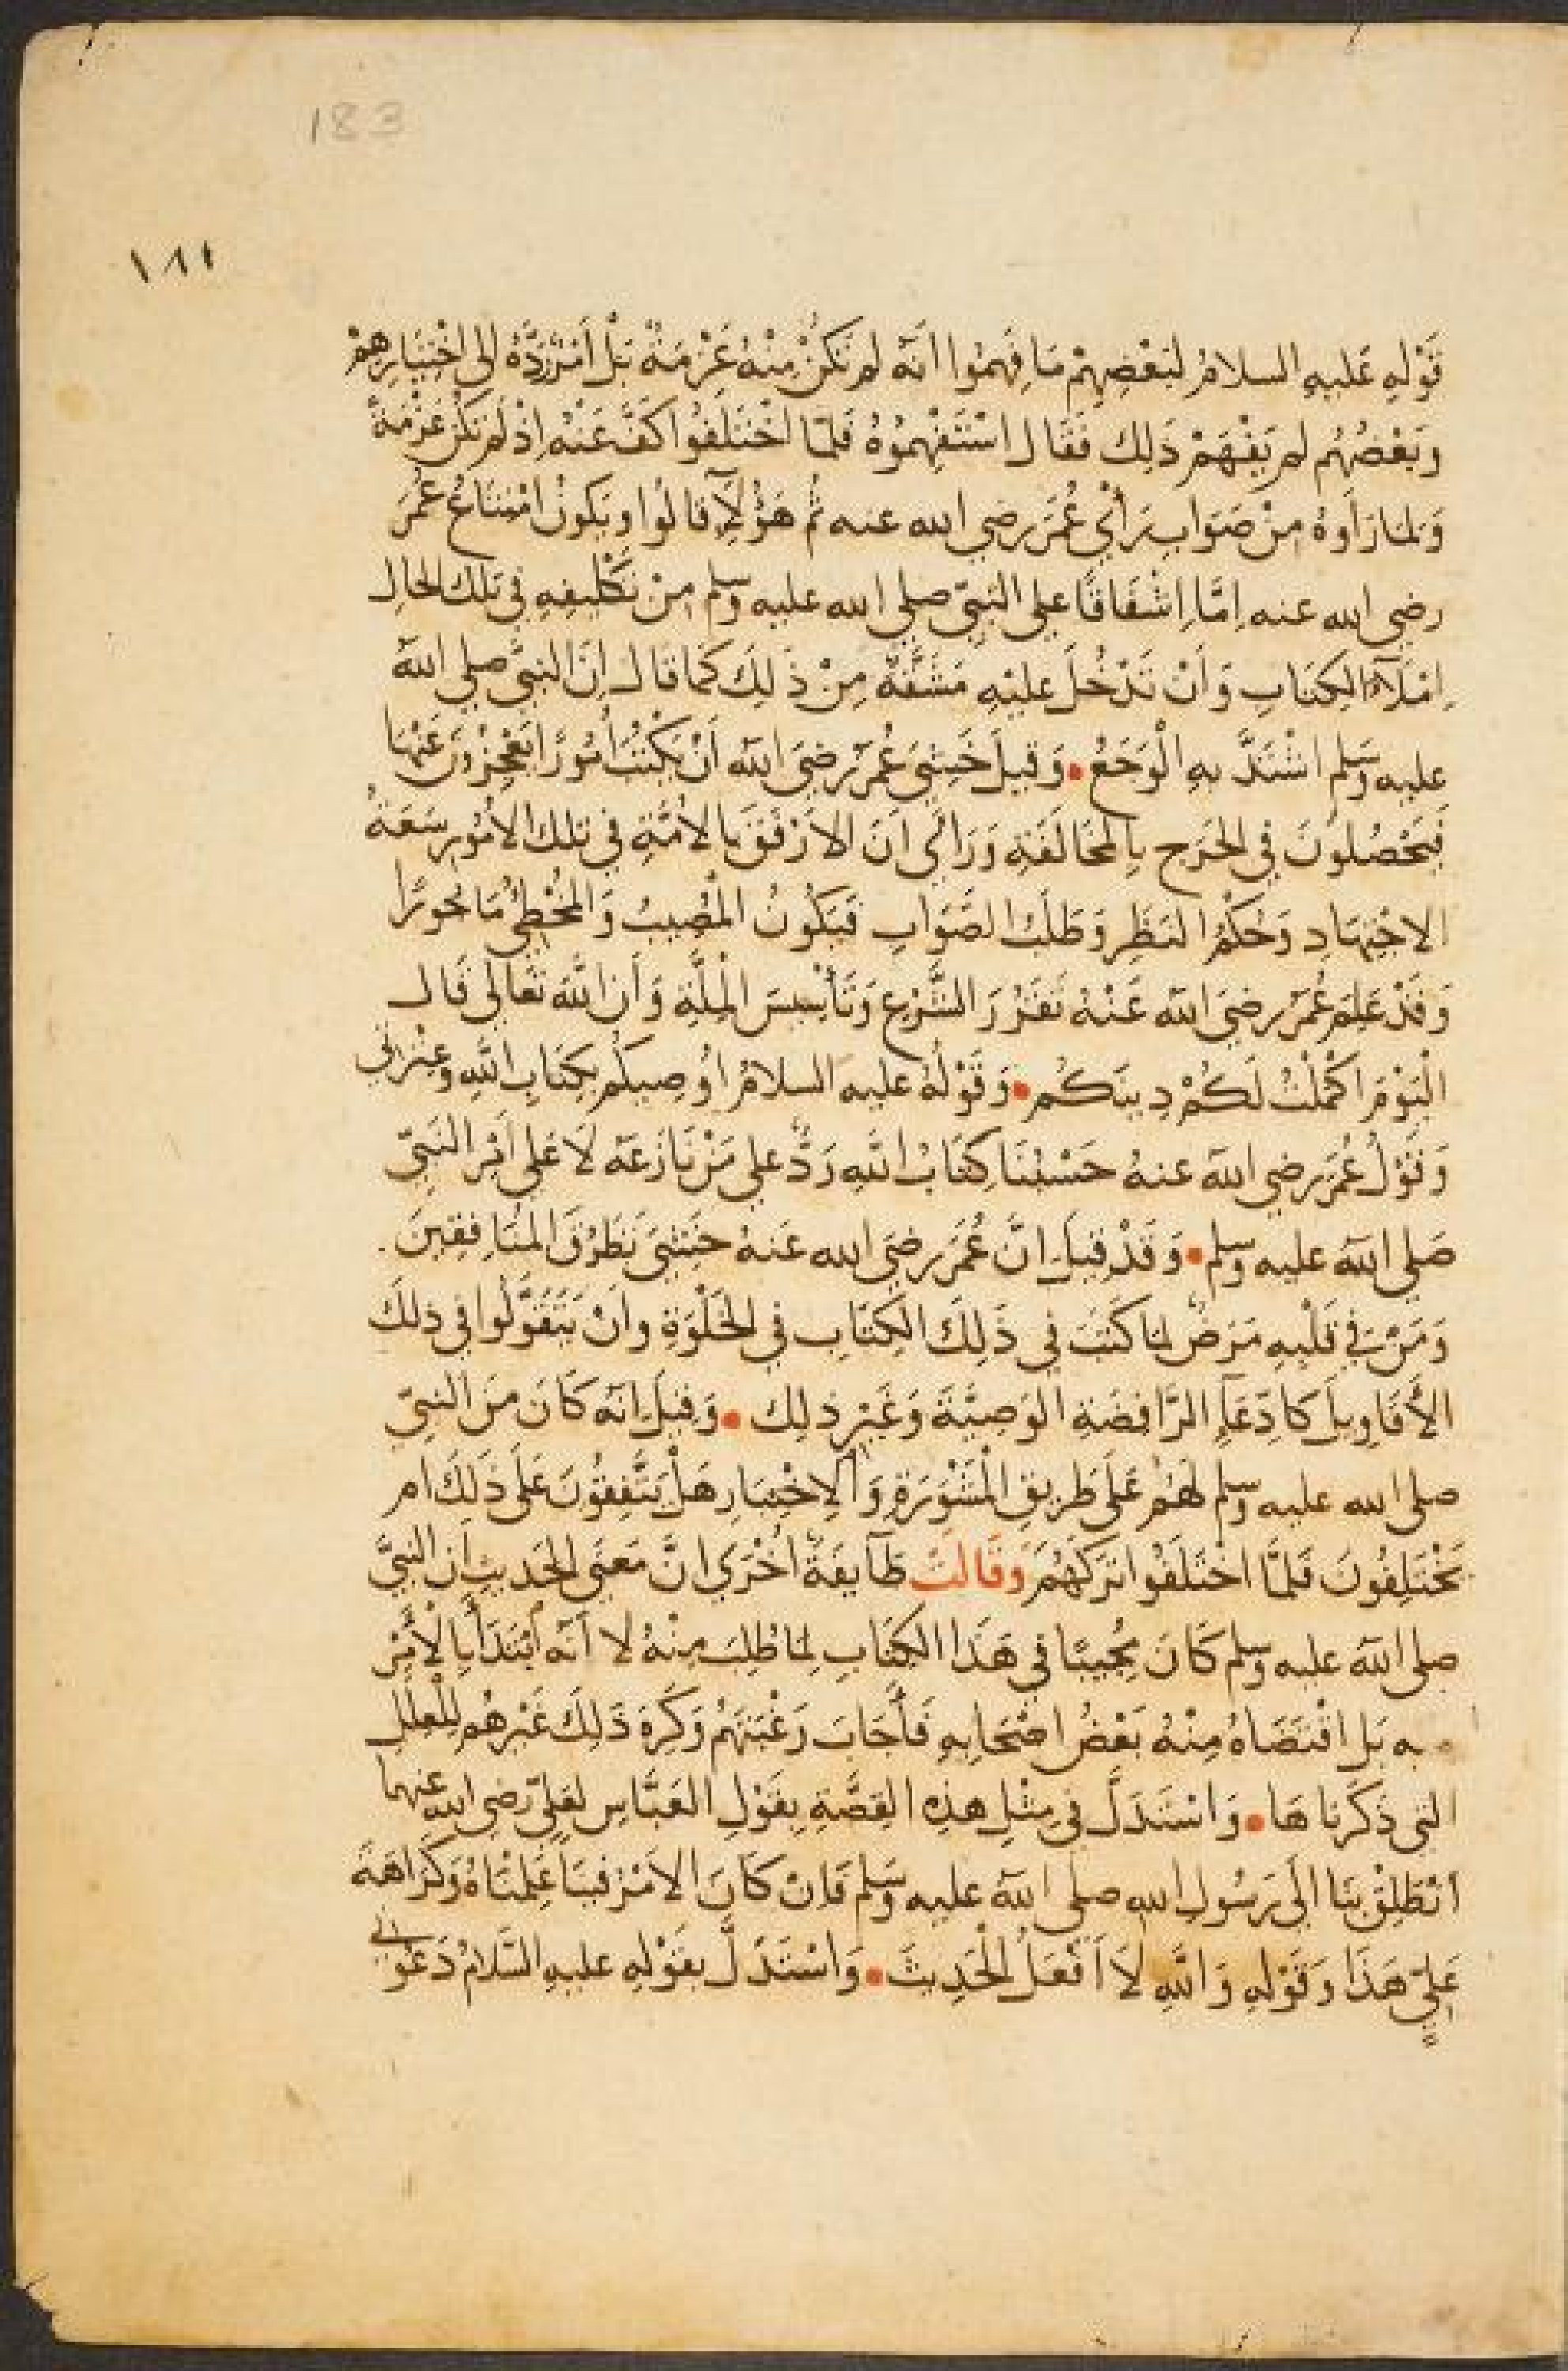 183
١٨١
قَوْلِهِ عَلَيهِ السلامُ لبَعْضِهِمْ مَا فَهِمُوا أنَّه لم تَكُنْ مِنْهُ عَزْمَةٌ بَلْ أَمْرٌ رَدَّهُ إلى اخْتِيَارِهِمْ
وَبَعْضُهُم لم يَفْهَمْ ذَلِكَ فَقَال اسْتَفْهِمُوهُ فَلمَّا اخْتَلَفُوا كَفَّ عَنْه إذْ لَمْ تَكُنْ عَزْمَةً
وَلمَا رَأَوهُ مِنْ صَوَابِ رَأْيِ عُمَرَ رضي الله عنه ثُم هَؤُلَآءِ قَالُوا وَيَكونُ امْتِنَاعُ عُمَرَ
رضي الله عنه اِمَّا اِشْفَاقًا على النَّبِيّ صلى الله عليه وسلم مِنْ تَكْلِيفِهِ في تلكَ الحَالِ
اِمْلَآءَ الكِتَابِ وَأَنْ تَدْخُلَ عليْهِ مَشَقَّةٌ مِنْ ذَلِكَ كَما قَالَ اِنَّ النبيَّ صلى الله
عليه وسَلم اشْتَدَّ بِهِ الْوَجَعُ • وَقِيلَ خَشِيَ عُمَرُ رضِيَ الله أَنْ يَكْتُبَ أُمُورًا يَعْجِزُونَ عَنْهَا
فَيَحْصُلُونَ في الحَرَجِ بِالمُخَالَفَةِ وَرَأَى أَنَّ الأَرْفَقَ بِالأُمَّةِ في تلك الأُمُورِ سَعَةُ
الاجْتِهَادِ وَحُكْمُ النَظَرِ وَطَلَبُ الصَّوَابِ فَيَكُونُ المُصِيبُ وَالمُخْطِئُ مَأجُورًا
وَقَدْ عَلِمَ عُمَرُ رضِيَ الله عَنْهُ تَقَرُّرَ الشَّرْعِ وَتَأْسِيسَ المِلَّةِ وَأَنَّ اللَّهَ تَعَالَى قَالَ
الْيَوْمَ اكْمَلْتُ لَكُمْ دِينَكُم • وَقَوْلُهُ عليه السلامُ أُوصِيكُم بِكِتَابِ اللَّهِ وعِتْرَتِي
وَقَوْلُ عُمَرَ رضي الله عنهُ حَسْبُنَا كِتَابُ اللهِ رَدٌّ على مَنْ نَازَعَهُ لَا عَلى أَمْرِ النَبِيّ
صَلى الله عليه وسلم • وَقَدْ قِيلَ إنَّ عُمَرَ رضِيَ الله عَنهُ خَشِيَ تَطَرُّقَ المُنَافِقِينَ
وَمَنْ فِي قَلْبِهِ مَرَضٌ لمَا كَتَبَ فِي ذَلِكَ الكِتَابِ في الخَلْوَةِ وانْ يَتَقَوَّلُوا في ذلكَ
الأَقَاوِيلَ كَادِّعَآءِ الرَّافِضَةِ الوَصِيَّةَ وَغَيْرِ ذلِكَ • وَقِيلَ انَّه كَانَ منَ النبِيّ
صلى الله عليه وسلم لَهُمْ عَلَى طَرِيقِ الْمَشُوَرَةِ وَالاِخْتِبَارِ هَلْ يَتَّفِقُونَ عَلَى ذَلِكَ أم
يَخْتَلِفُونَ فَلمَّا اخْتَلَفُوا تَرَكَهُمْ وَقَالَتْ طَآيِفَةٌ أُخْرَى إنَّ مَعْنَى الحَدِيثِ أنَّ النبيَّ
صلى الله عليه وسلم كَانَ مُجِيبًا في هَذَا الكِتَابِ لِمَا طُلِبَ مِنْهُ لا أنَّه ابْتَدَأَ بِالأَمْرِ
به بَل اقْتَضَاهُ مِنْهُ بَعْضُ اصْحَابِهِ فَأَجَابَ رَغْبَتَهُمْ وَكَرِهَ ذَلِكَ غَيْرُهُم لِلْعِلَلِ
التي ذَكَرْنَاهَا • وَاسْتَدَلَّ في مِثْلِ هَذِهِ القِصَّةِ بِقَوْلِ العَبَّاسِ لعَليّ رضي الله عنهما
انْطَلِقْ بِنَا إلَى رَسُولِ اللهِ صلى الله عليه وسَلم فَإنْ كَانَ الأمْرُ فِينَا عَلِمْنَاهُ وَكَرَاهَةِ
عَلِيٍّ هَذَا وَقَوْلِهِ وَاللهِ لَا أَفْعَلُ الْحَدِيثَ • وَاسْتَدَلَّ بِقَوْلِهِ عليهِ السَّلَامُ دَعُونِي